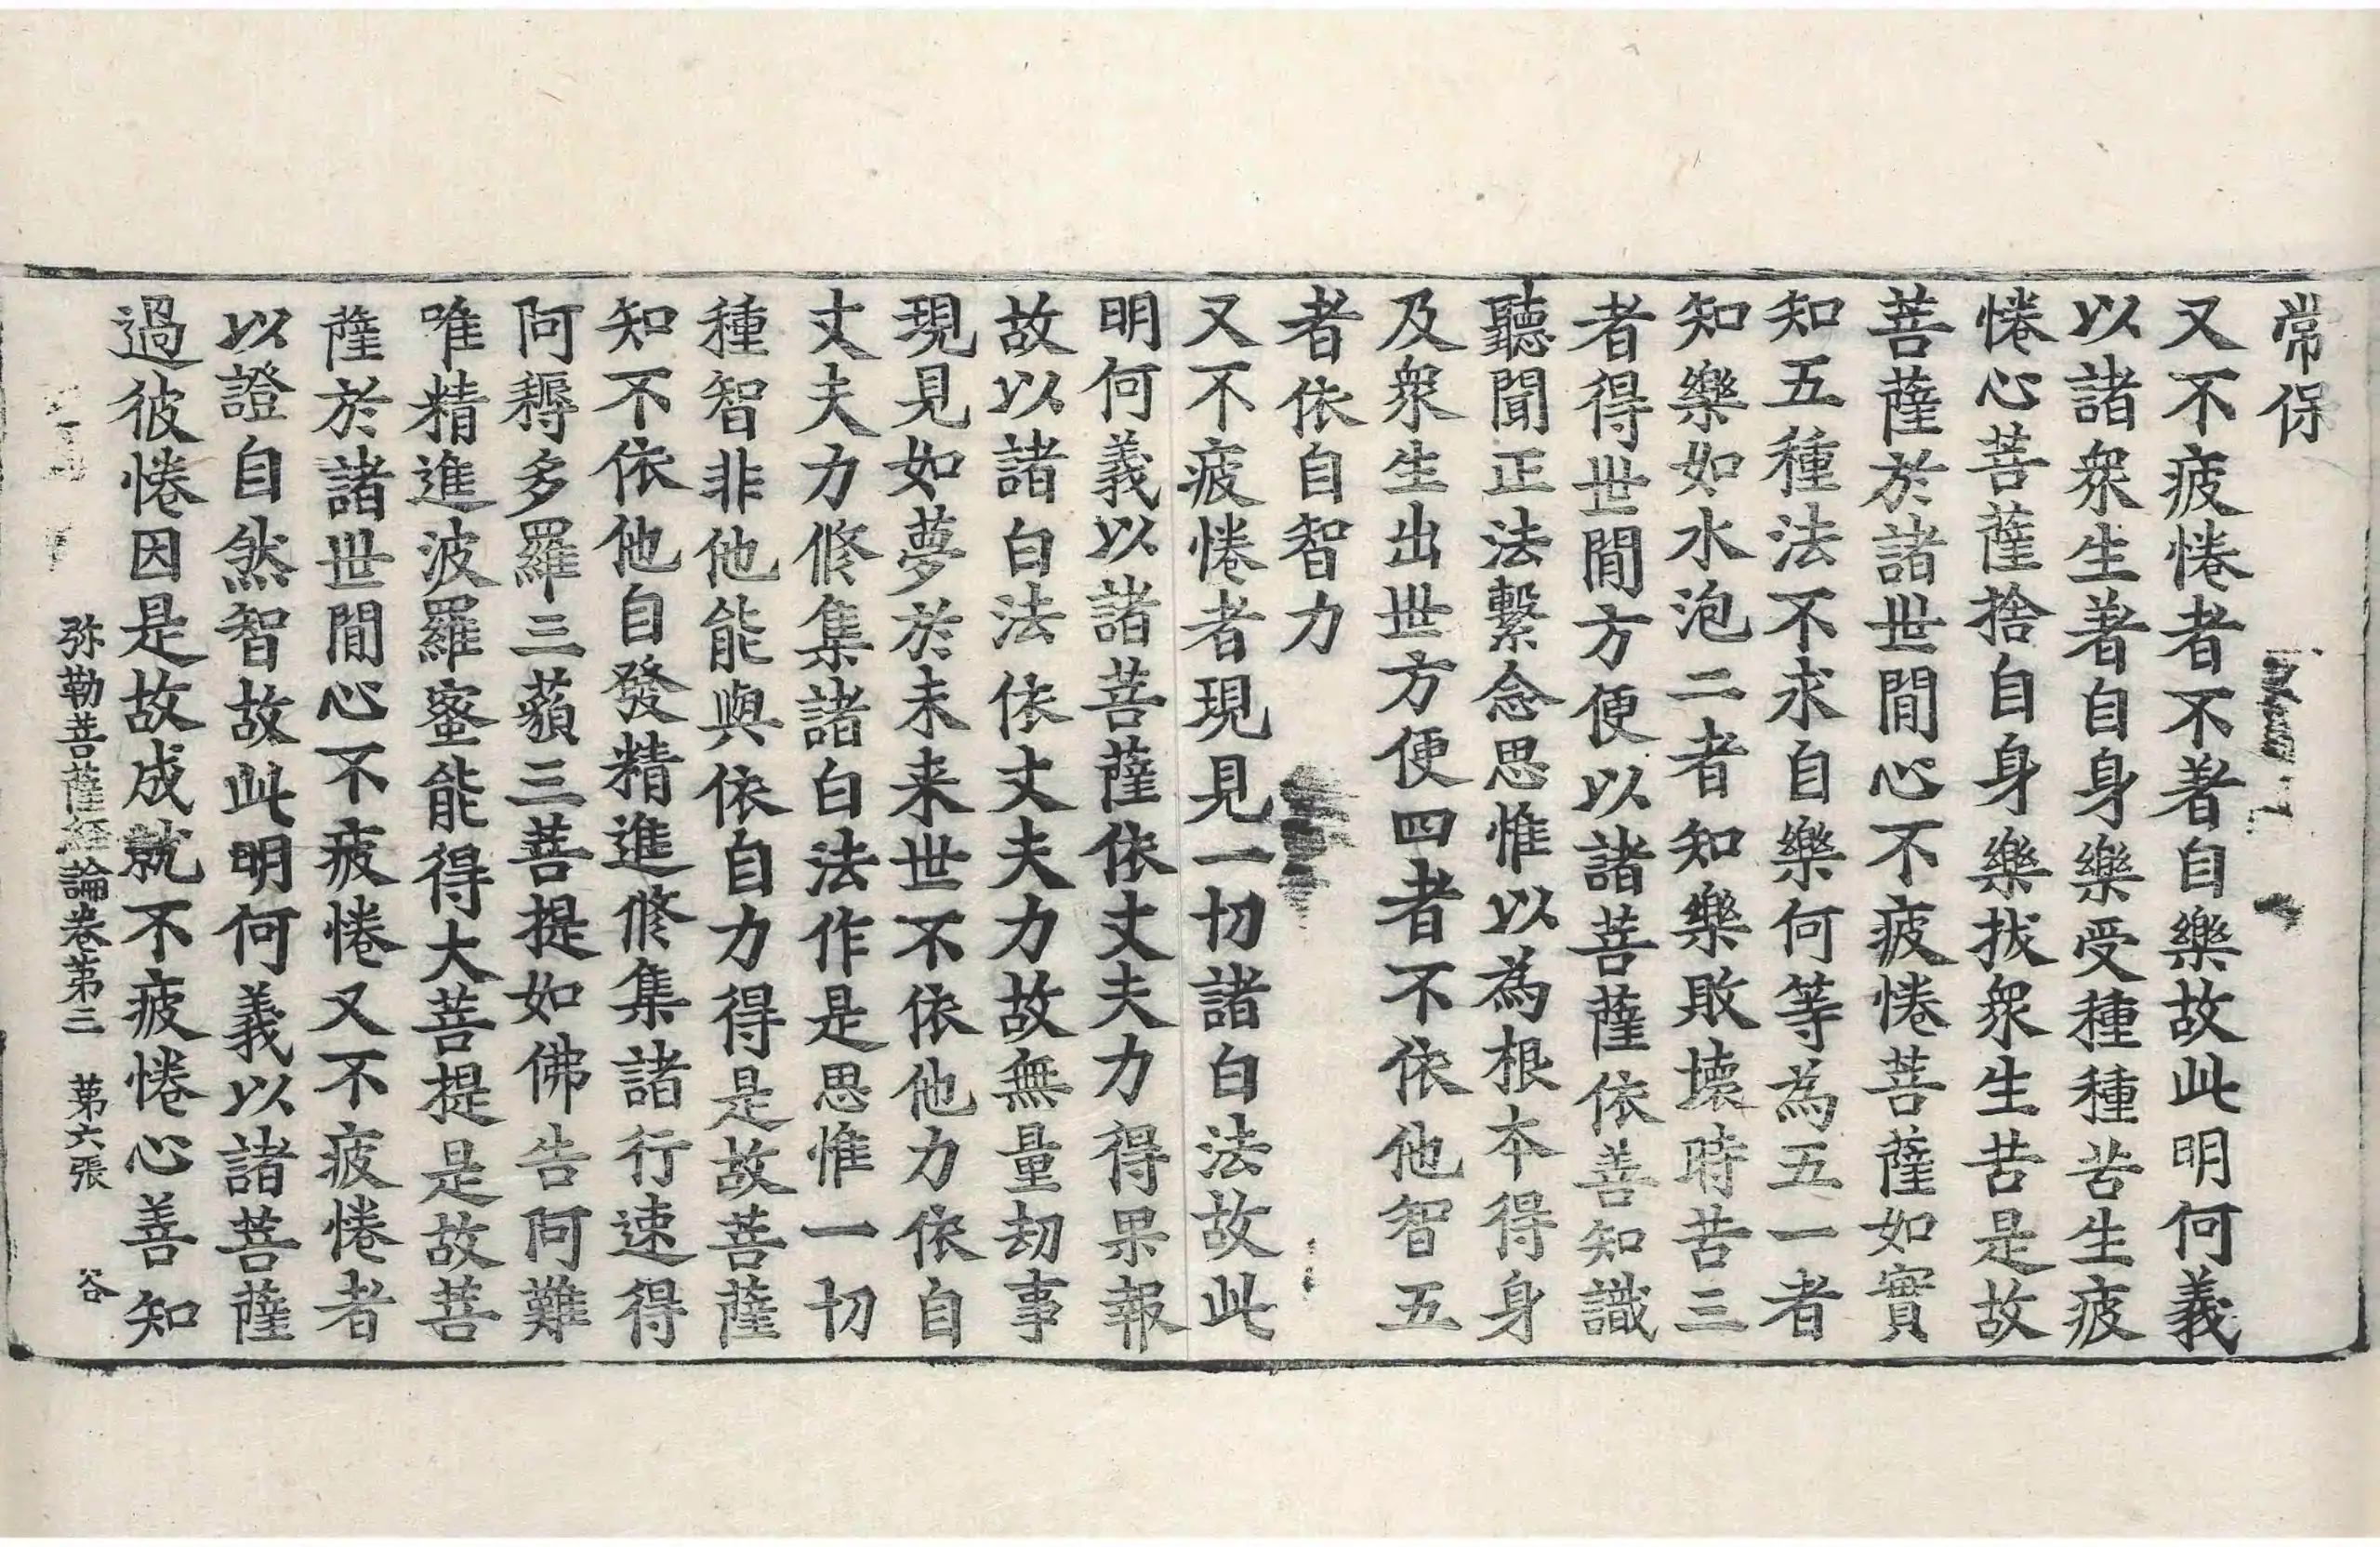 常保
又不疲惓者不著自樂故此明何義
以諸衆生著自身樂受種種苦生疲
惓心菩薩捨自身樂拔衆生苦是故
菩薩於諸世閒心不疲惓菩薩如實
知五種法不求自樂何等為五一者
知樂如水泡二者知樂敗壞時苦三
者得世閒方便以諸菩薩依善知識
聽聞正法繫念思惟以為根本得身
及衆生出世方便四者不依他智五
者依自智力
又不疲惓者現見一切諸白法故此
明何義以諸菩薩依丈夫力得果報
故以諸白法依丈夫力故無量劫事
現見如夢於未来世不依他力依自
丈夫力修集諸白法作是思惟一切
種智非他能與依自力得是故菩薩
知不依他自發精進修集諸行速得
阿耨多羅三藐三菩提如佛告阿難
唯精進波羅蜜能得大菩提是故菩
薩於諸世閒心不疲惓又不疲惓者
以證自然智故此明何義以諸菩薩
過彼惓因是故成就不疲惓心善知
弥勒菩薩經論卷第三 第六張 谷